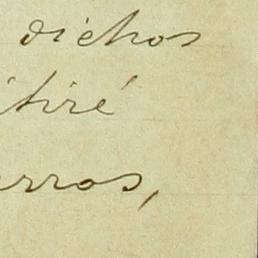 dichos
itiré
erros,